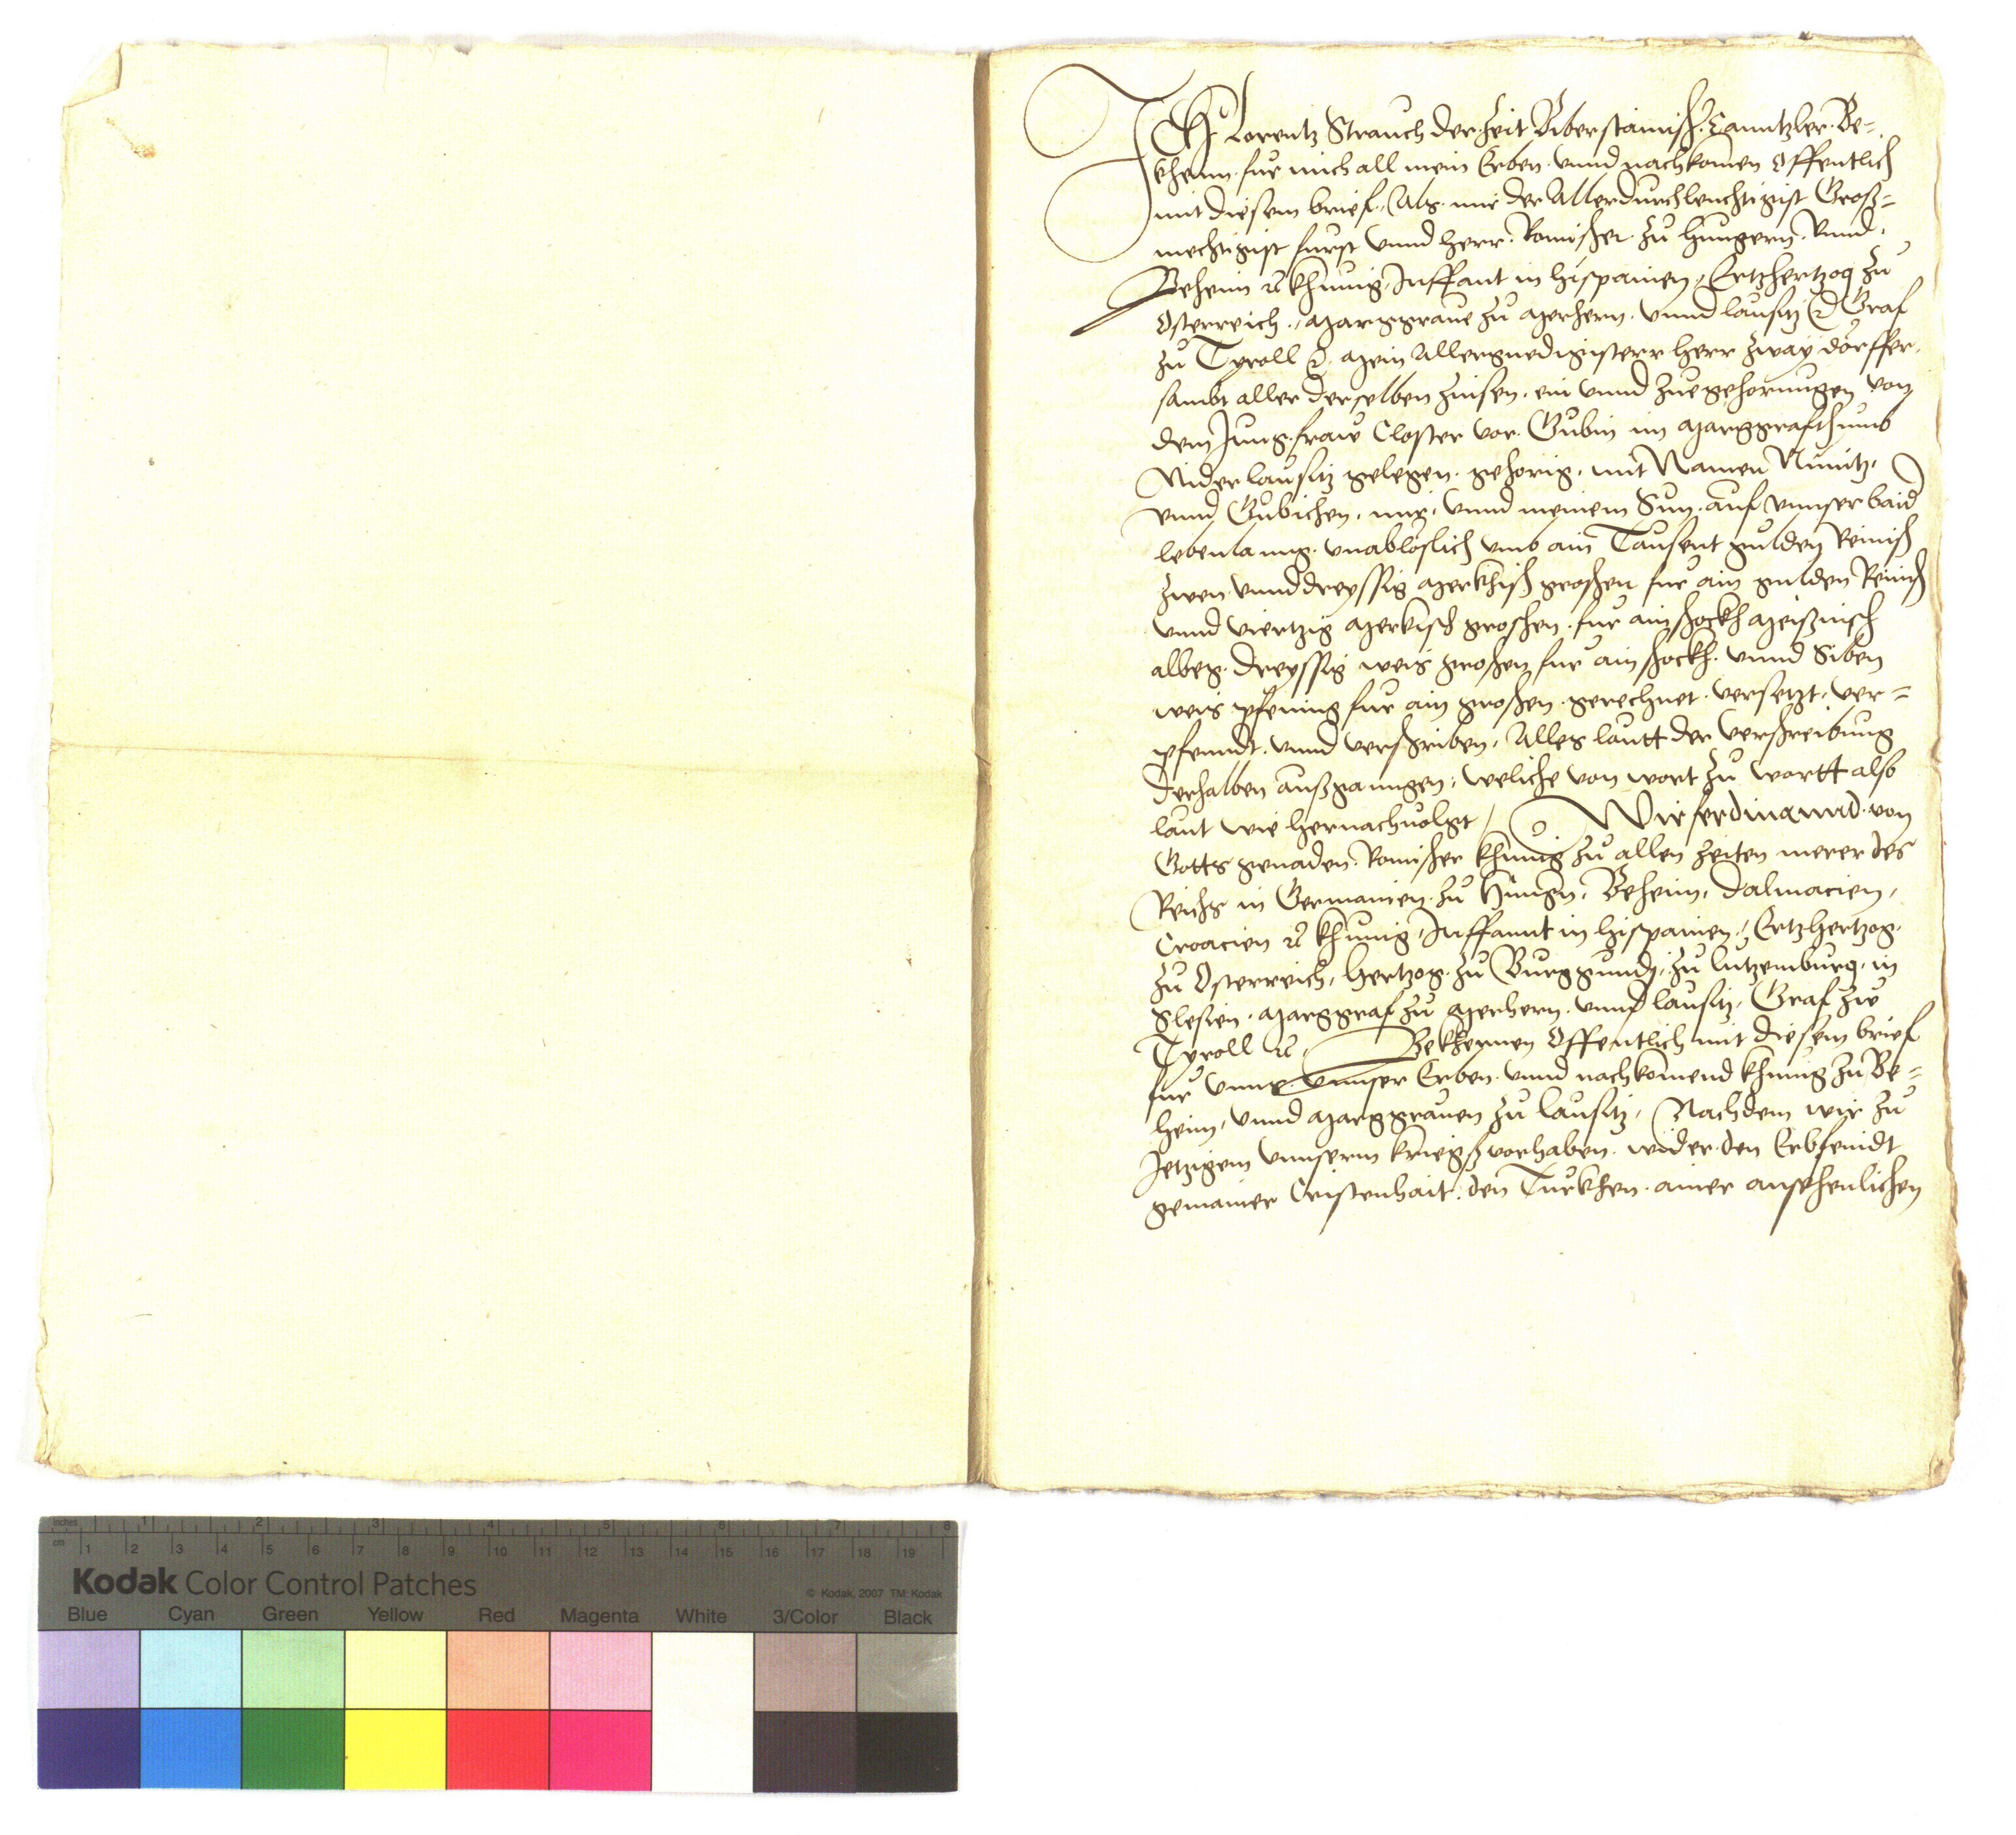 Ich Lorentz Strauch der Zeit Biberstainisch Canntzler Be-
khenn fur mich all mein Erben vnnd nachkomen Offentlich
mit diesem brief, Als mir der Allerdurchleuchtigist Groß-
mechtigist furst vnnd herr Romischer zu Hungern vnnd
Beheim &c khunig, Inffant in hispanien, Ertzhertzog zu
Osterreich, Marggraue zu Merhern vnnd lausitz &c Graf
zu Tyroll &c. Mein Allergnedigisterr herr zway dörffer
sambt aller derselben zinsen, ein vnnd zuegehorungen von
dem Jungfraw Closter vor Gubin im Marggrafthumb
Niderlausitz gelegen gehorig, mit Namen Nimitz
vnnd Gubichen, mir vnnd meinem Sun auf vnnser baid
lebenlanng vnablöslich vmb ain Tausent gulden Reinisch
zwen vnnd dreyssig Merkhisch groschen fur ain gulden Reinisch
vnnd viertzig Merkisch groschen fur ain schockh Meissnisch
alweg dreyssig weis groschen fur ain schockh vnnd Siben
weis pfening fur ain groschen gerechnet versetzt, ver-
pfenndt vnnd verschriben, Alles lautt der verschreibung
derhalben außganngen, weliche von wort zu wortt also
laut wie hernachuolgt, Wir ferdinannd von
Gotts genaden Romischer khunig zu allen Zeiten merer des
Reichs in Germanien zu Hungern, Beheim, Dalmacien,
Croacien &c khunig, Inffannt in hispanien, Ertzhertzog
zu Osterreich, Hertzog zu Burggundj, zu lutzemburg, in
Slesien, Marggraf zu Merhern vnnd lausitz, Graf zue
Tyroll &c, Bekhennen Offentlich mit diesem brief
fur vnns vnnser Erben vnnd nachkomend khunig zu Be-
heim, vnnd Marggrauen zu lausitz, Nachdem wir zu
Jetzigem vnnserm kriegßvorhaben wider den Erbfeindt
gemainer Cristenhait, den Turkhen ainer ansehenlichen
inches 1 2 3 4 5 6 7 8
cm 1 2 3 4 5 6 7 8 9 10 11 12 13 14 15 16 17 18 19
Kodak Color Control Patches © Kodak, 2007 TM: Kodak
Blue Cyan Green Yellow Red Magenta White 3/Color Black